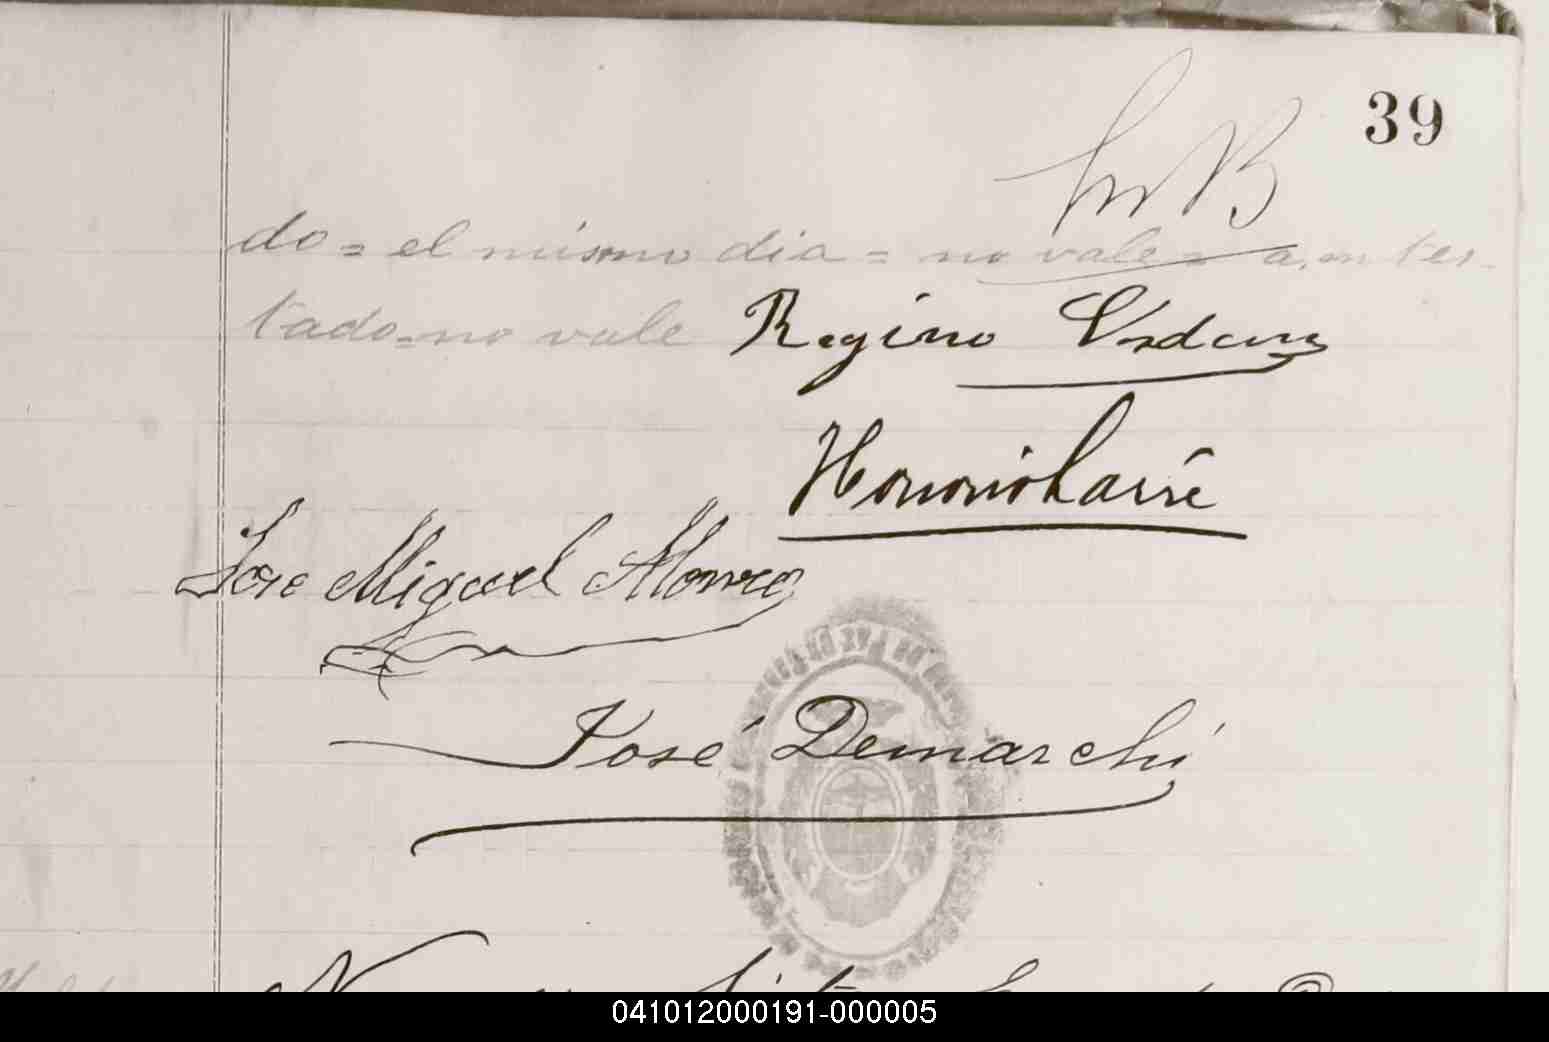 39
do = el mismo dia = no vale = a, entes-
tado = no vale Regino
Honorio Larré
Jose Miguel Alonso
José Demarchi
041012000191-000005